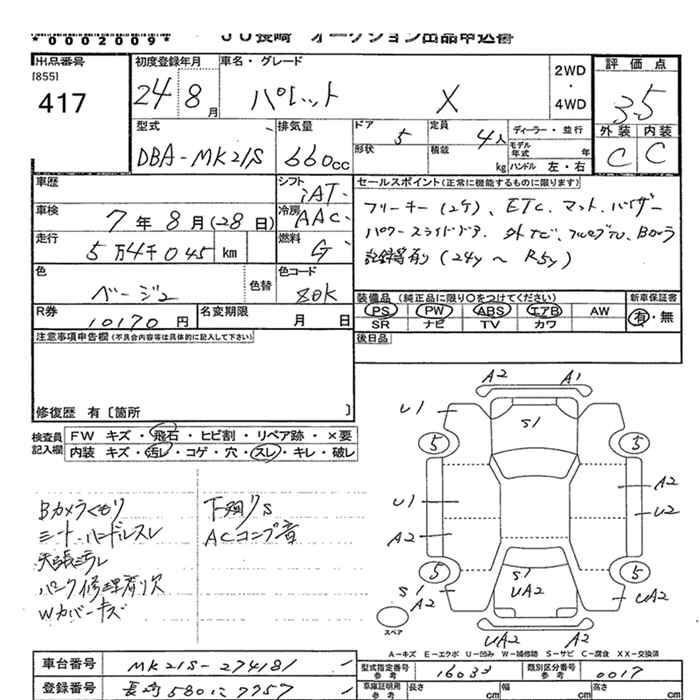 *0002009*
JU長崎 オークション出品申込書
出品番号
[855]
417
初度登録年月
24 8月
車名・グレード
パレット X
2WD
・
4WD
評価点
3.5
外装 内装
C C
型式
DBA-MK21S
排気量
660cc
ドア 5
定員 4人
形状
積載 kg
ディーラー・並行
モデル年式 年
ハンドル 左・右
車歴
シフト
iAT
車検
7年8月(28日)
冷房
AAC
走行
5万4千045 km
燃料
G
色
ベージュ
色替
色コード
R券
10170円
名変期限
月 日
セールスポイント(正常に機能するものに限ります)
フリーキー(2ケ)、ETC、マット、バイザー
パワースライドドア、外ナビ、フルセグTV、Bカメラ
記録簿有り(24y～R5y)
装備品(純正品に限り○をつけてください)
新車保証書
PS PW ABS エアB AW
SR ナビ TV カワ
有・無
後日品
注意事項申告欄(不具合内容等は具体的に記入して下さい)
修復歴 有〔箇所 〕
検査員記入欄
FW キズ・飛石・ヒビ割・リペア跡・×要
内装 キズ・汚レ・コゲ・穴・スレ・キレ・破レ
Bカメラくもり
シート・ハンドルスレ
天張汚レ
パンク修理剤欠
Wカバーキズ
下廻りS
ACコンプ音
A2 A1
U1 S1
5 5
U1 A2
A2 U2
5 5
S1 A2
S1
UA2
UA2
UA2 A2
スペア
A-キズ E-エクボ U-凹み W-補修跡 S-サビ C-腐食 XX-交換済
車台番号
MK21S-274181
登録番号
長崎580に7757
型式指定番号
類別区分番号
0017
車庫証明用
参考
長さ cm
幅 cm
高さ cm